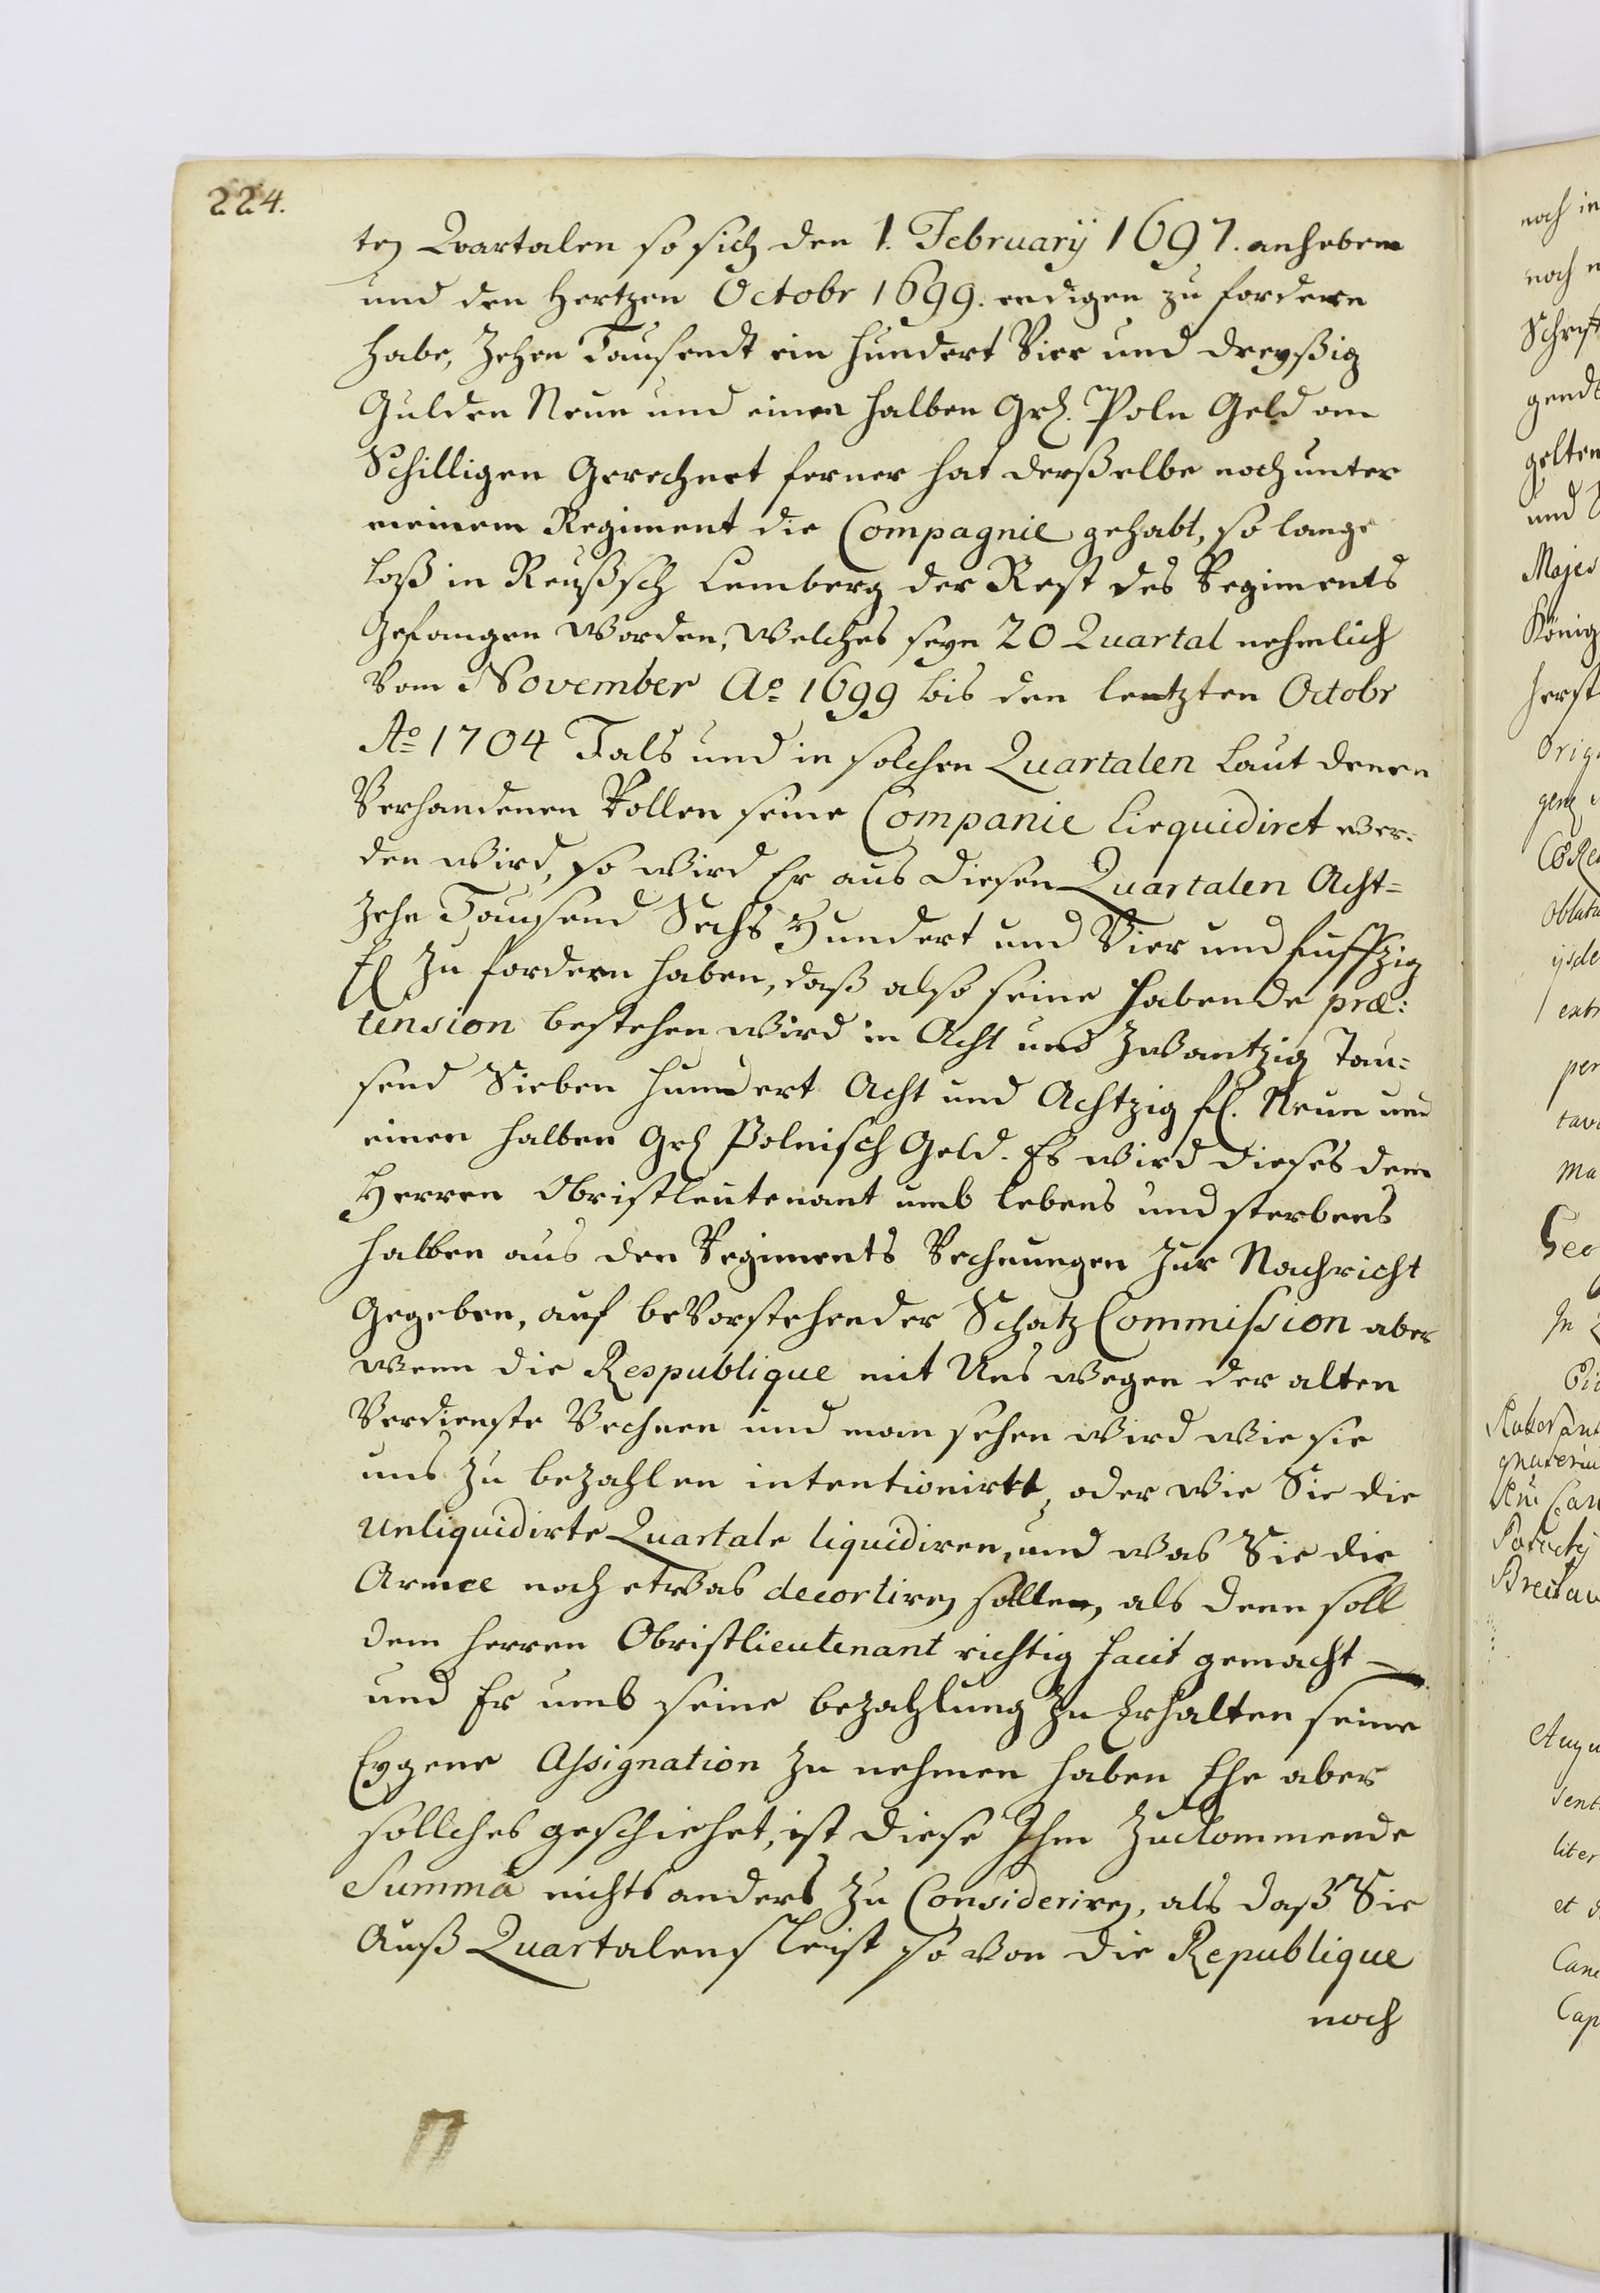 224.
ten Quartalen so sich den 1. Februarÿ 1697. anheben
und den Hertzen Octobr 1699. endigen zu fordern
habe, Zehen Tausendt ein hundert Vier und dreyßig
Gulden Neun und einen halben Grh. Poln Geld am
Schilligen Gerechnet ferner hat derßelbe noch unter
meinem Regiment die Compagnie gehabt, so lange
loß in Reußsch Lemberg der Rest des Regiments
Gefangen worden, Welches seyn 20 Quartal nehmlich
Vom November Ao 1699 bis den lentzten Octobr
Ao 1704 Fals und in solchen Quartalen Laut denen
Verhandenen Rollen seine Companie Liequidiret wer-
den wird, so wird Er aus diesen Quartalen Acht-
zehn Tausend Sechs Hundert und Vier und fuffzig
fl zu fordern haben, daß also seine habende præ:
tension bestehen wird in Acht und Zwantzig Tau-
send Sieben hundert Acht und Achtzig fl. Neun und
einen halben Grh Polnisch Geld. Es wird dieses dem
Herren Obristleutenant umb lebens und sterbens
halben aus den Regiments Rechnungen zur Nachricht
Gegeben, auf beVorstehender Schatz Commission aber
wenn die Respublique mit Uns wegen der alten
Verdienste Rechnen und man sehen wird wie sie
uns zu bezahlen intentionirtt, oder wie Sie die
Unliquidirte Quartale liquidiren, und was Sie die
Armee noch etwas decortiren sollten, als denn soll
dem Herren Obristlieutenant richtig facit gemacht
und Er umb seine bezahlung zu Erhalten seine
Eygene Assignation zu nehmen haben Ehe aber
sollches geschiehet, ist diese Ihm zukommende
Summa nichts anders zu Consideriren, als daß Sie
Auß Quartalen so von die Republique
noch
noch in
noch
Schrift
gelten
und
Majes
König
herst
Orig
oblata
extr
per
Ma
In
et
Cap